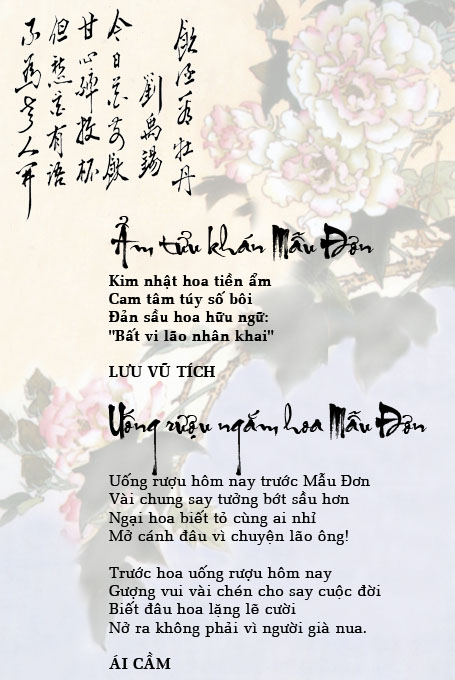 飲酒看牡丹
劉禹錫
今日花前飲
甘心醉數杯
但愁花有語
不為老人開
Ẩm tửu khán Mẫu Đơn
Kim nhật hoa tiền ẩm
Cam tâm túy số bôi
Đản sầu hoa hữu ngữ:
"Bất vi lão nhân khai"
LƯU VŨ TÍCH
Uống rượu ngắm hoa Mẫu Đơn
Uống rượu hôm nay trước Mẫu Đơn
Vài chung say tưởng bớt sầu hơn
Ngại hoa biết tỏ cùng ai nhỉ
Mở cánh đâu vì chuyện lão ông!
Trước hoa uống rượu hôm nay
Gượng vui vài chén cho say cuộc đời
Biết đâu hoa lặng lẽ cười
Nở ra không phải vì người già nua.
ÁI CẦM